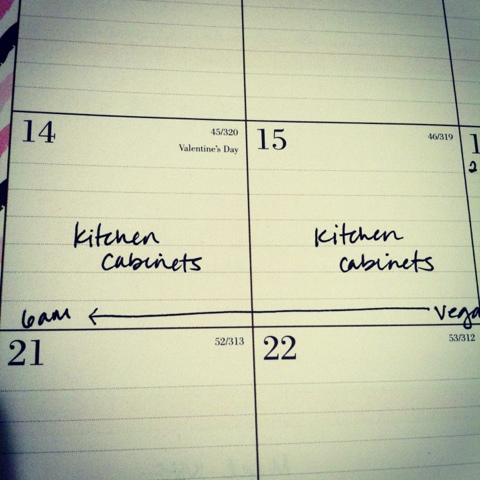 14 45/320
Valentine's Day
15 46/319
1
2
kitchen
cabinets
kitchen
cabinets
6am
21 52/313
22 53/312